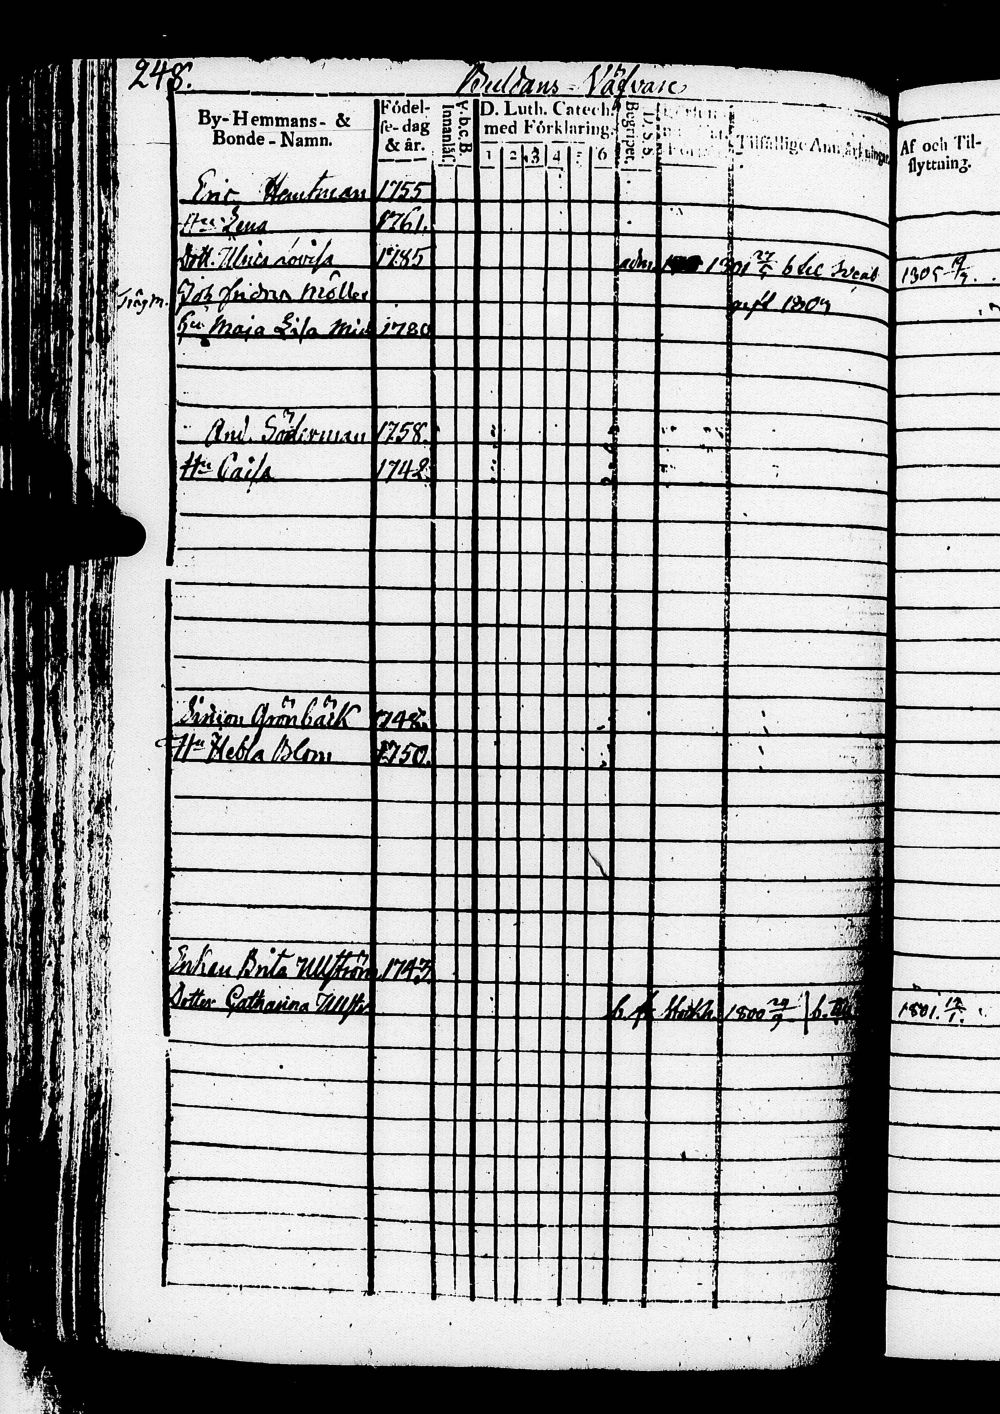 248.
Buldans - Väfvare
By- Hemmans- &
Bonde - Namn.
Födel-
se- dag
& år.
A.b.c.B
Innanläs.
D. Luth. Catech.
med Förklaring.
1 2 3 4 5 6
Begripet.
D. S. S.
Tilfällige Anmärkningar
Af och Til-
flyttning.
Eric Hautman 1755
Hu Lena 1761.
Dott. Ulrica Lovisa 1785 adm. 1801 27/5 b til 1805 19/9.
Joh Fridric Möller gift 1809
Hu Maja Lisa 1780
And. Söderman 1758.
Hu Caisa 1742
Simon Grönbäck 1748.
Hu Hebla Blom 1750.
Enkan Brita Ullström 1743
Dotter Catharina b. fr. Stockh. 1800 29/9 b. 1801. 12/1.